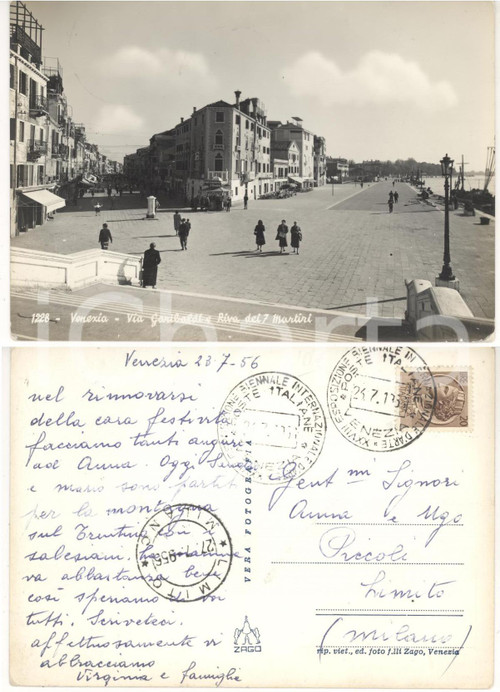 1228 - Venezia - Via Garibaldi e Riva dei 7 Martiri
Venezia 23-7-56
nel rinnovarsi
della cara festività
facciamo tanti auguri
ad Anna. Oggi
e Mario sono partiti
per la montagna
sul Trentino con i
salesiani.
va abbastanza bene
così speriamo di voi
tutti. Scriveteci.
affettuosamente vi
abbracciamo
Virginia e famiglia
ESPOSIZIONE BIENNALE INTERNAZIONALE D'ARTE
POSTE ITALIANE
24.7.
VENEZIA
XXVIII ESPOSIZIONE BIENNALE INTERNAZIONALE D'ARTE
POSTE ITALIANE
24.7.
VENEZIA
LIMITO
MILANO
VERA FOTOGRAFIA
Gent mi Signori
Anna e Ugo
Piccoli
Limito
(Milano)
ZAGO
rip. viet., ed. foto f.lli Zago, Venezia